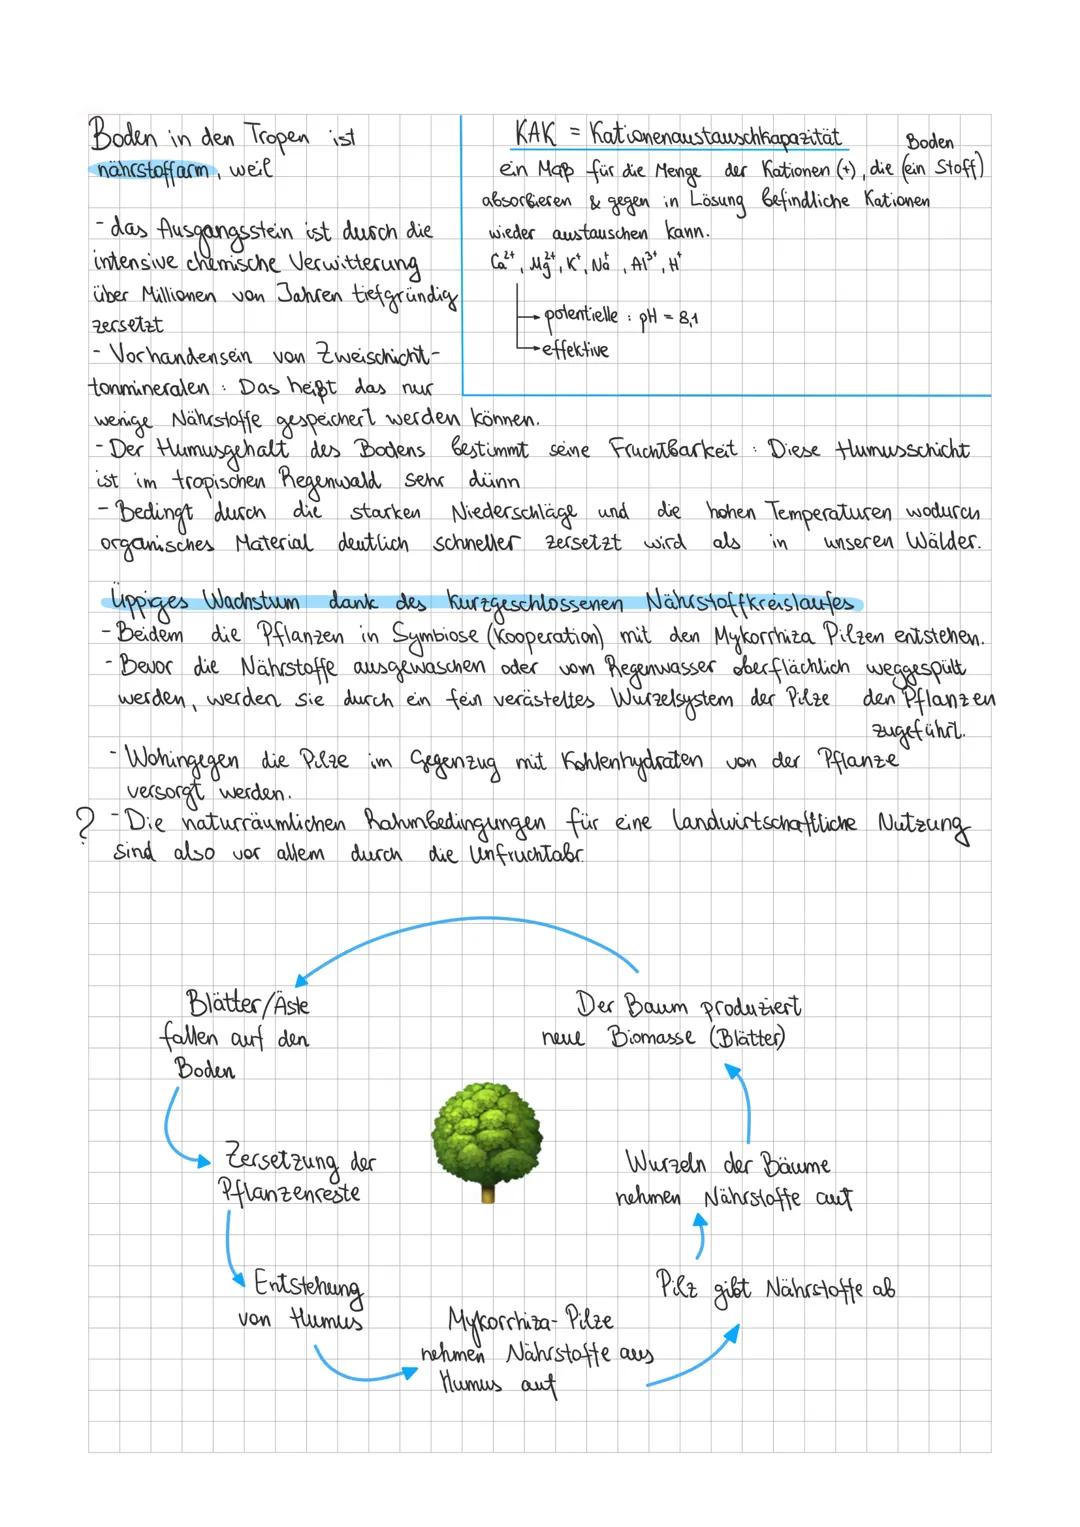 Boden in den Tropen ist
nährstoffarm, weil
- das Ausgangsstein ist durch die
intensive chemische Verwitterung
über Millionen von Jahren tiefgründig
zersetzt
- Vorhandensein von Zweischicht-
tonmineralen : Das heißt das nur
wenige Nährstoffe gespeichert werden können.
- Der Humusgehalt des Bodens bestimmt seine Fruchtbarkeit : Diese Humusschicht
ist im tropischen Regenwald sehr dünn
- Bedingt durch die starken Niederschläge und die hohen Temperaturen wodurch
organisches Material deutlich schneller zersetzt wird als in unseren Wälder.
KAK = Kationenaustauschkapazität
Boden
ein Maß für die Menge der Kationen (+), die (ein Stoff)
absorbieren & gegen in Lösung befindliche Kationen
wieder austauschen kann.
Ca²⁺, Mg²⁺, K⁺, Na⁺, Al³⁺, H⁺
→ potentielle : pH = 8,1
→ effektive
Üppiges Wachstum dank des kurzgeschlossenen Nährstoffkreislaufes
- Beidem die Pflanzen in Symbiose (Kooperation) mit den Mykorrhiza Pilzen entstehen.
- Bevor die Nährstoffe ausgewaschen oder vom Regenwasser oberflächlich weggespült
werden, werden sie durch ein fein verästeltes Wurzelsystem der Pilze den Pflanzen
zugeführt.
- Wohingegen die Pilze im Gegenzug mit Kohlenhydraten von der Pflanze
versorgt werden.
? - Die naturräumlichen Rahmbedingungen für eine landwirtschaftliche Nutzung
sind also vor allem durch die Unfruchtabr.
Blätter/Äste
fallen auf den
Boden
Zersetzung der
Pflanzenreste
Entstehung
von Humus
Mykorrhiza-Pilze
nehmen Nährstoffe aus
Humus auf
Pilz gibt Nährstoffe ab
Wurzeln der Bäume
nehmen Nährstoffe auf
Der Baum produziert
neue Biomasse (Blätter)